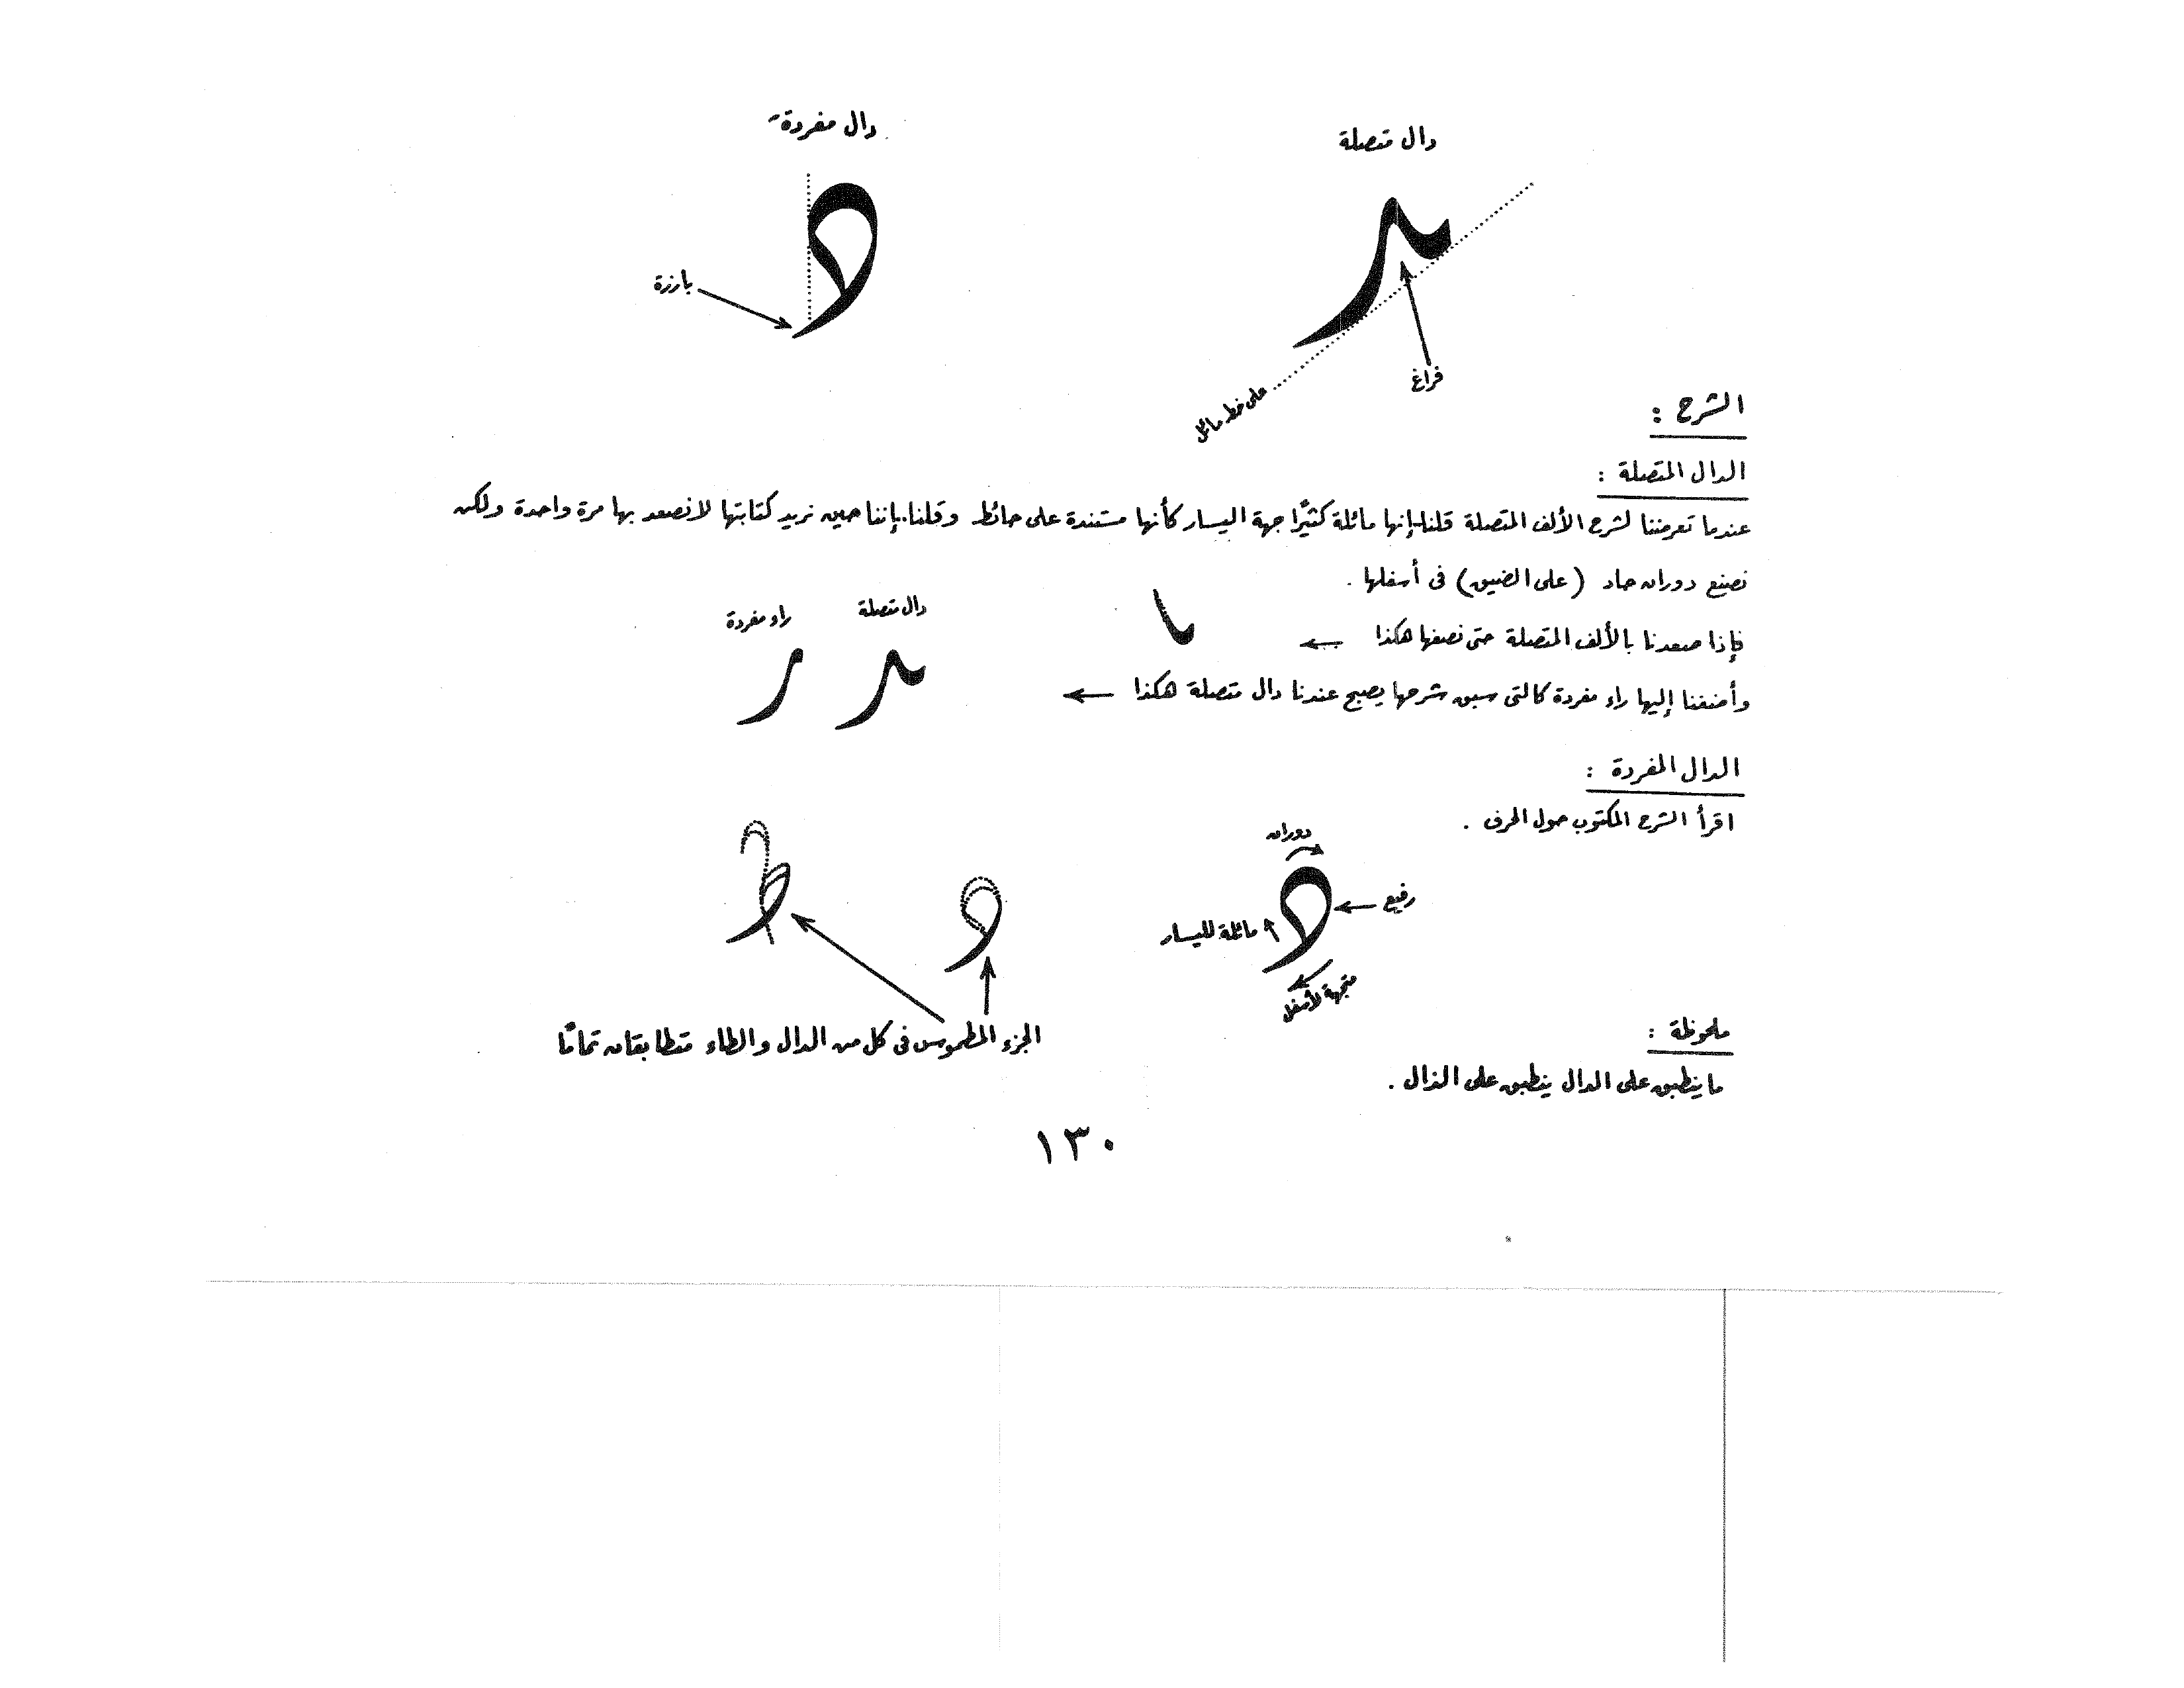 دال متصلة
دال مفردة
بارزة
فراغ
على خط مائل
الشرح :
الدال المتصلة :
عندما تعرضنا لشرح الألف المتصلة قلنا إنها مائلة كثيرًا جهة اليسار كأنها مستندة على حائط وقلنا إننا حين نريد كتابتها لا نصعد بها مرة واحدة ولكن
نصنع دوران حاد (على الضيق) فى أسفلها .
فإذا صعدنا بالألف المتصلة حتى نصفها هكذا ←
وأضفنا إليها راء مفردة كالتى سبق شرحها يصبح عندنا دال متصلة هكذا ←
دال متصلة
راء مفردة
الدال المفردة :
اقرأ الشرح المكتوب حول الحرف .
دوران
رفيع
مائلة لليسار
متجهة لأسفل
الجزء المطموس فى كل من الدال والطاء متطابقان تمامًا
ملحوظة :
ما ينطبق على الدال ينطبق على الذال .
١٣٠